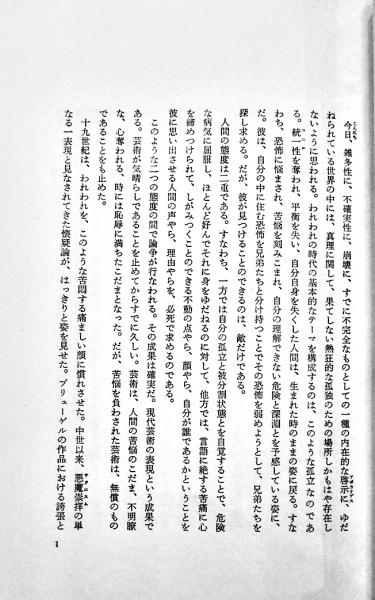 今日、雑多性に、不確実性に、崩壊に、すでに不完全なものとしての一種の内在的な啓示に、ゆだ
ねられている世界の中には、真理に関して、果てしない熱狂的な孤独のための場所しかもはや存在し
ないように思われる。われわれの時代の基本的なテーマを構成するのは、このような孤立なのであ
る。統一性を奪われ、平衡を失い、自分自身を失くした人間は、生まれた時のままの姿に戻る。すな
わち、恐怖に悩まされ、苦悩を刻みこまれ、自分の理解できない危険と深淵とを予感している姿に、
だ。彼は、自分の中に住む恐怖を兄弟たちと分け持つことでその恐怖を弱めようとして、兄弟たちを
探し求める。だが、彼が見つけることのできるのは、敵だけである。
人間の態度は二重である。すなわち、一方では自分の孤立と被分割状態とを自覚することで、危険
な病気に屈服し、ほとんど好んでそれに身をゆだねるのに対して、他方では、言語に絶する苦痛に心
を締めつけられて、しがみつくことのできる不動の点やら、顔やら、自分が誰であるかということを
彼に思い出させる人間の声やら、理由やらを、必死で求めるのである。
このような二つの態度の間で論争が行なわれる。その成果は確実だ。現代芸術の表現という成果で
ある。芸術が気晴らしであることを止めてからすでに久しい。芸術は、人間の苦悩のこだま、不明瞭
な、心奪われる、時には恥辱に満ちたこだまとなった。だが、苦悩を負わされた芸術は、無償のもの
であることをも止めた。
十九世紀は、われわれを、このような苦悶する痛ましい顔に慣れさせた。中世以来、悪魔崇拝の単
なる一表現と見なされてきた懐疑論が、はっきりと姿を見せた。ブリューゲルの作品における誇張と
1